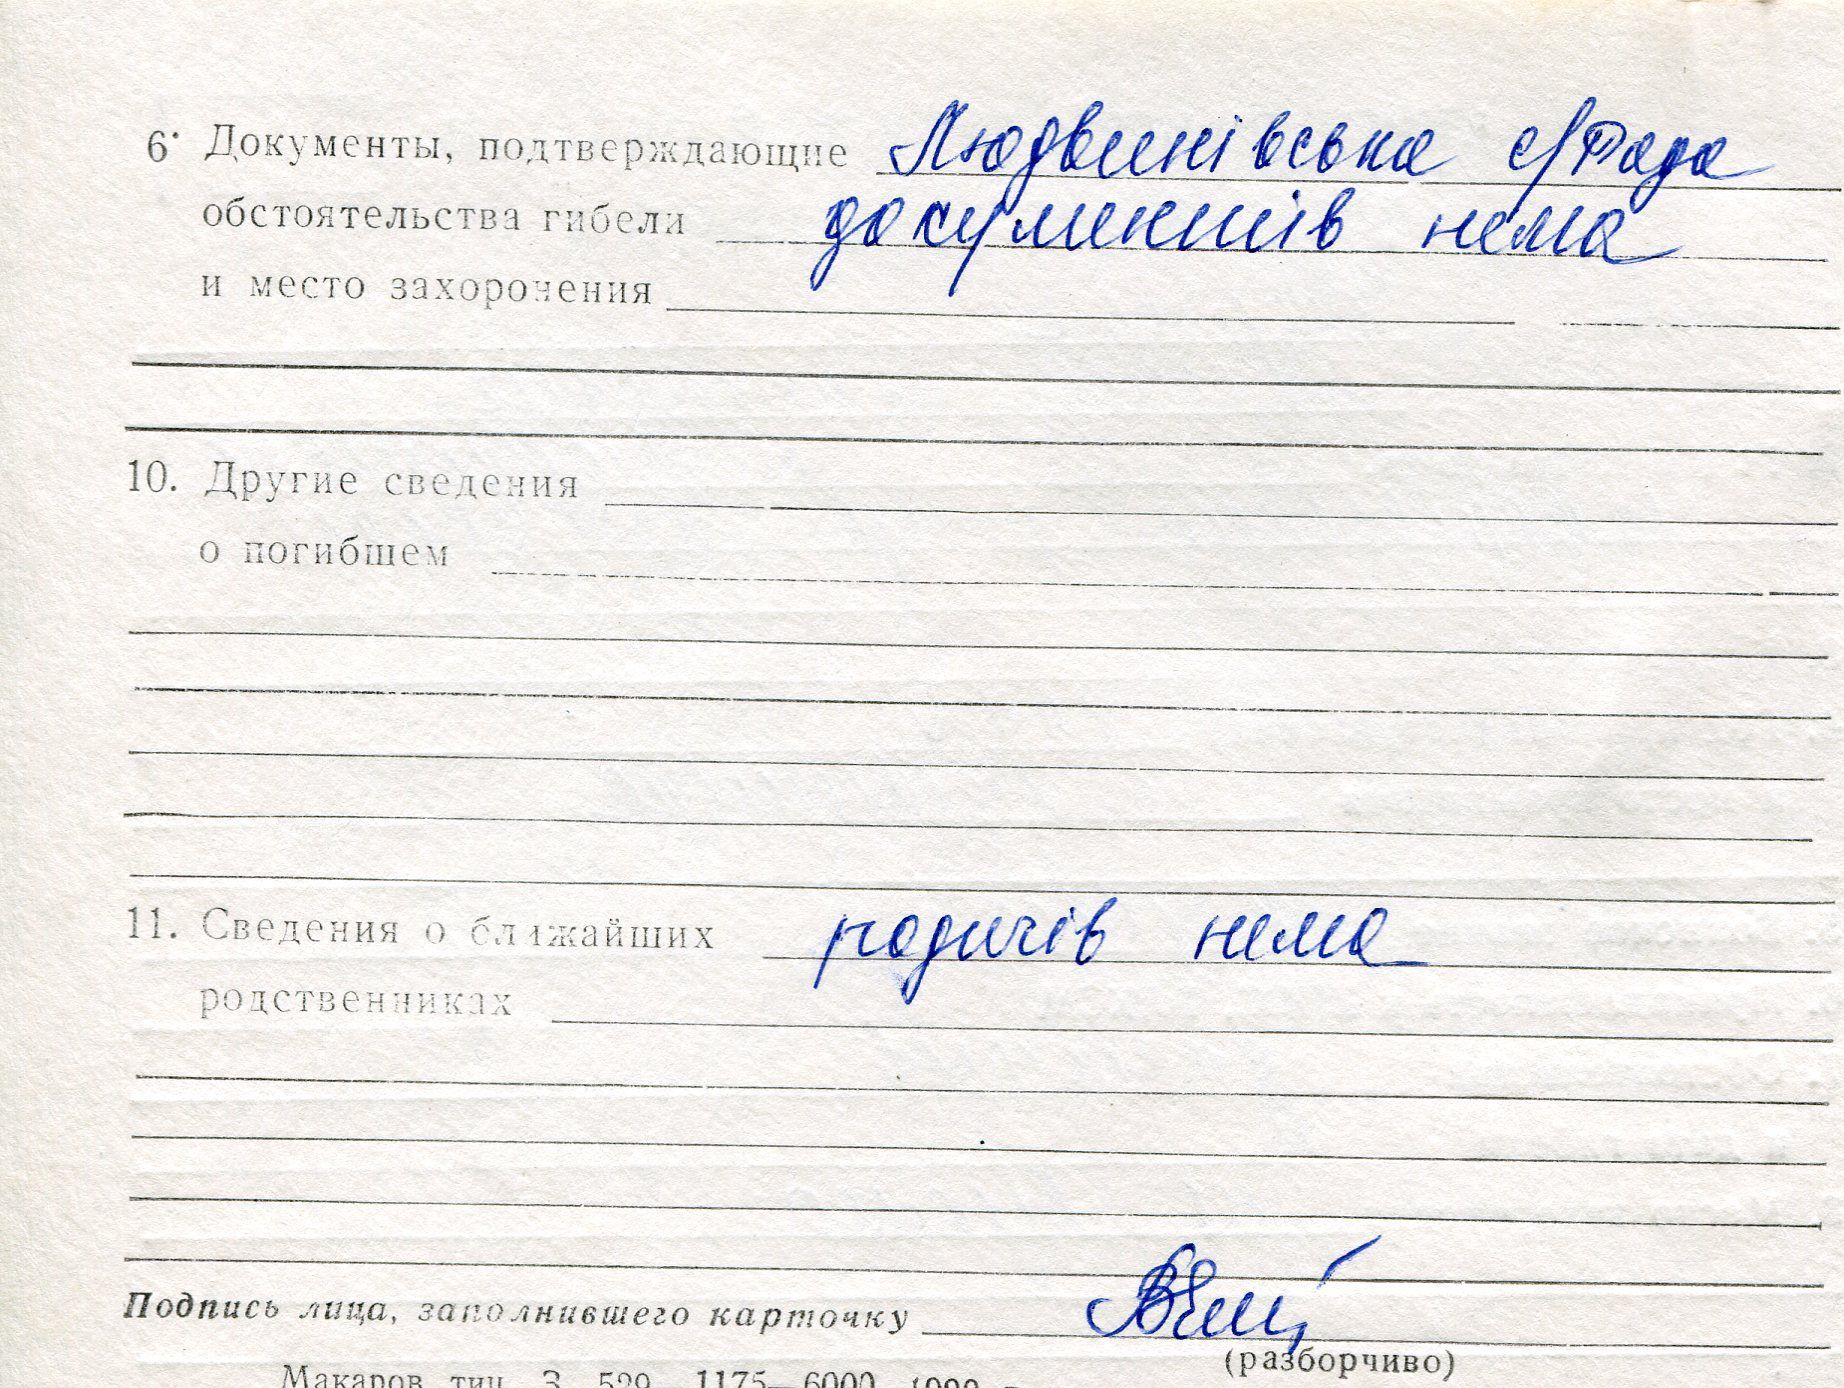 6. Документы, подтверждающие Людвинівська с/Рада
обстоятельства гибели документів нема
и место захоронения
10. Другие сведения
о погибшем
11. Сведения о ближайших родичів нема
родственниках
Подпись лица, заполнившего карточку
(разборчиво)
Макаров, тип. З. 529—1175—6000